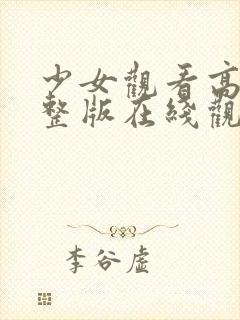 少女觀看高
整版在綫觀
李谷虛